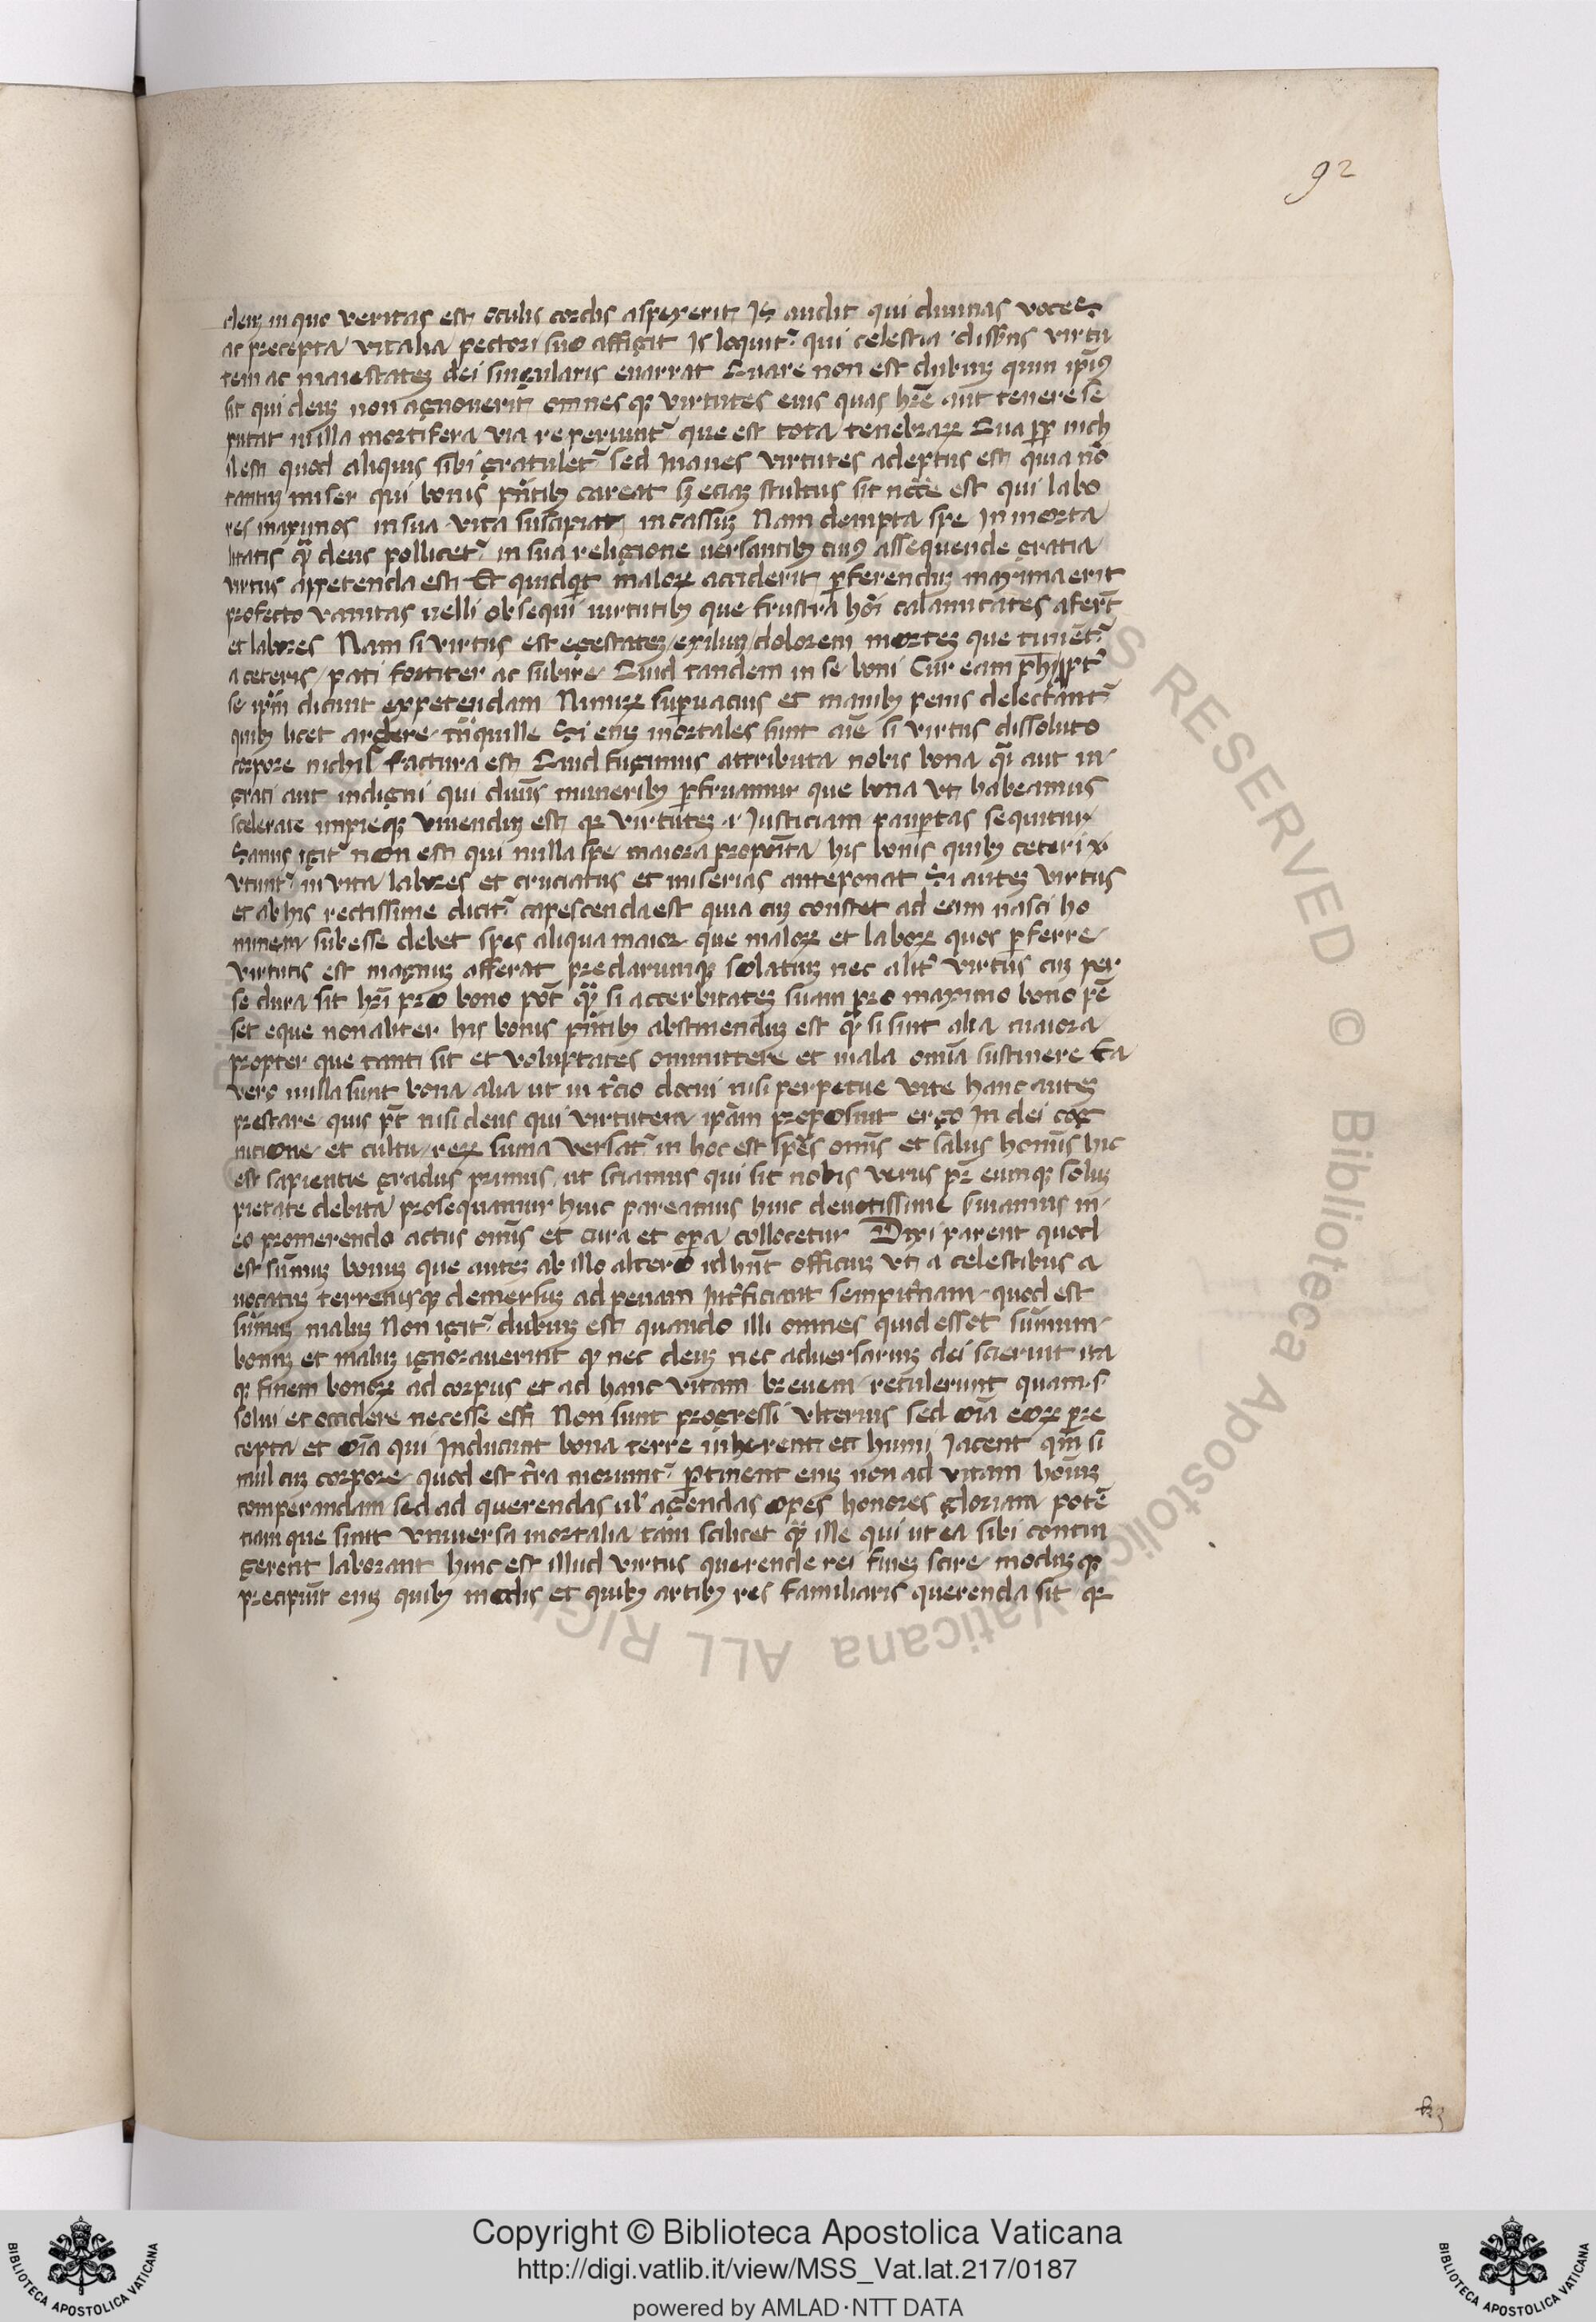 92
deum in quo veritas est oculis cordis aspexerit Is audit qui divinas voces
ac precepta vitalia pectori suo affigit Is loquitur qui celestia disserens virtu
tem ac maiestatem dei singularis enarrat Quare non est dubium quin impius
sit qui deum non agnoverit omnesque virtutes eius quas habere aut tenere se
putat in illa mortifera via reperiuntur que est tota tenebrarum Qua propter nich
il est quod aliquis sibi gratuletur sed inanes virtutes adeptus est quia non
tantum miser qui bonis presentibus careat sed eciam stultus sit necesse est qui labo
res maximos in sua vita suscipiat in cassum Nam dempta spe inmorta
litatis quam deus pollicetur in sua religione versantibus cuius assequende gratia
virtus appetenda est Et quidquid malorum acciderit perferendum maxima erit
profecto vanitas velli obsequi virtutibus que frustra homini calamitates aferunt
et labores Nam si virtus est egestatem exilium dolorem mortem que timentur
a ceteris pati fortiter ac subire Quid tandem in se boni Cur eam
se ipsam dicunt expetendam Nimirum supervacuis et inanibus penis delectantur
quibus licet ardere tranquille Si enim mortales sunt anime si virtus dissoluto
corpore nichil factura est Quid fugimus attributa nobis bona quasi aut in
grati aut indigni qui divinis muneribus perfruamur que bona ut habeamus
scelerate impieque vivendum est quia virtutem et Iusticiam paupertas sequitur
Sanus igitur non est qui nulla spe maiora proposita his bonis quibus ceteri
utuntur in vita labores et cruciatus et miserias anteponat Si autem virtus
et ab his rectissime dicitur capescenda est quia cum constet ad eam nasci ho
minem subesse debet spes aliqua maior que malorum et laborum quos perferre
virtutis est magnum afferat preclarumque solatium nec aliter virtus cum per
se dura sit haberi pro bono potest quam si accerbitatem suam pro maximo bono pen
set eque non aliter his bonis presentibus abstinendum est quam si sint alia maiora
propter que tanti sit et voluptates ommittere et mala omnia sustinere Ea
vero nulla sunt bona alia ut in tercio docui nisi perpetue vite hanc autem
prestare quis potest nisi deus qui virtutem ipsam proposuit ergo In dei cog
nicione et cultu rerum summa versatur in hoc est spes omnis et salus hominis hic
est sapientie gradus primus ut sciamus qui sit nobis verus pater eumque solum
pietate debita prosequamur huic pareamus huic devotissime serviamus in
eo promerendo actus omnis et cura et opera collocetur Dixi parent quod
est summum bonum que autem ab illo altero id habent officium uti a celestibus a
vocatum terrenisque demersum ad penam interficiant sempiternam quod est
summum malum Non igitur dubium est quando illi omnes quid esset summum
bonum et malum ignoraverint quia nec deum nec adversarium dei scierunt ita
que finem bonorum ad corpus et ad hanc vitam brevem retulerunt quam s
solui et occidere necesse est Non sunt progressi ulterius sed omnia eorum pre
cepta et omnia qui Inducunt bona terre inherent et humi Iacent quoniam si
mul cum corpore quod est terra moriuntur pertinent enim non ad vitam hominum
comperandam sed ad querendas vel agendas opes honores gloriam poten
tiam que sunt universa mortalia tam scilicet quam ille qui ut ea sibi contin
gerent laborant hinc est illud virtus querende rei finem scire modumque
precipiunt enim quibus modis et quibus artibus res familiaris querenda sit quia
Copyright © Biblioteca Apostolica Vaticana
http://digi.vatlib.it/view/MSS_Vat.lat.217/0187
powered by AMLAD·NTT DATA
BIBLIOTECA APOSTOLICA VATICANA
BIBLIOTECA APOSTOLICA VATICANA
© Biblioteca Apostolica Vaticana ALL RIGHTS RESERVED